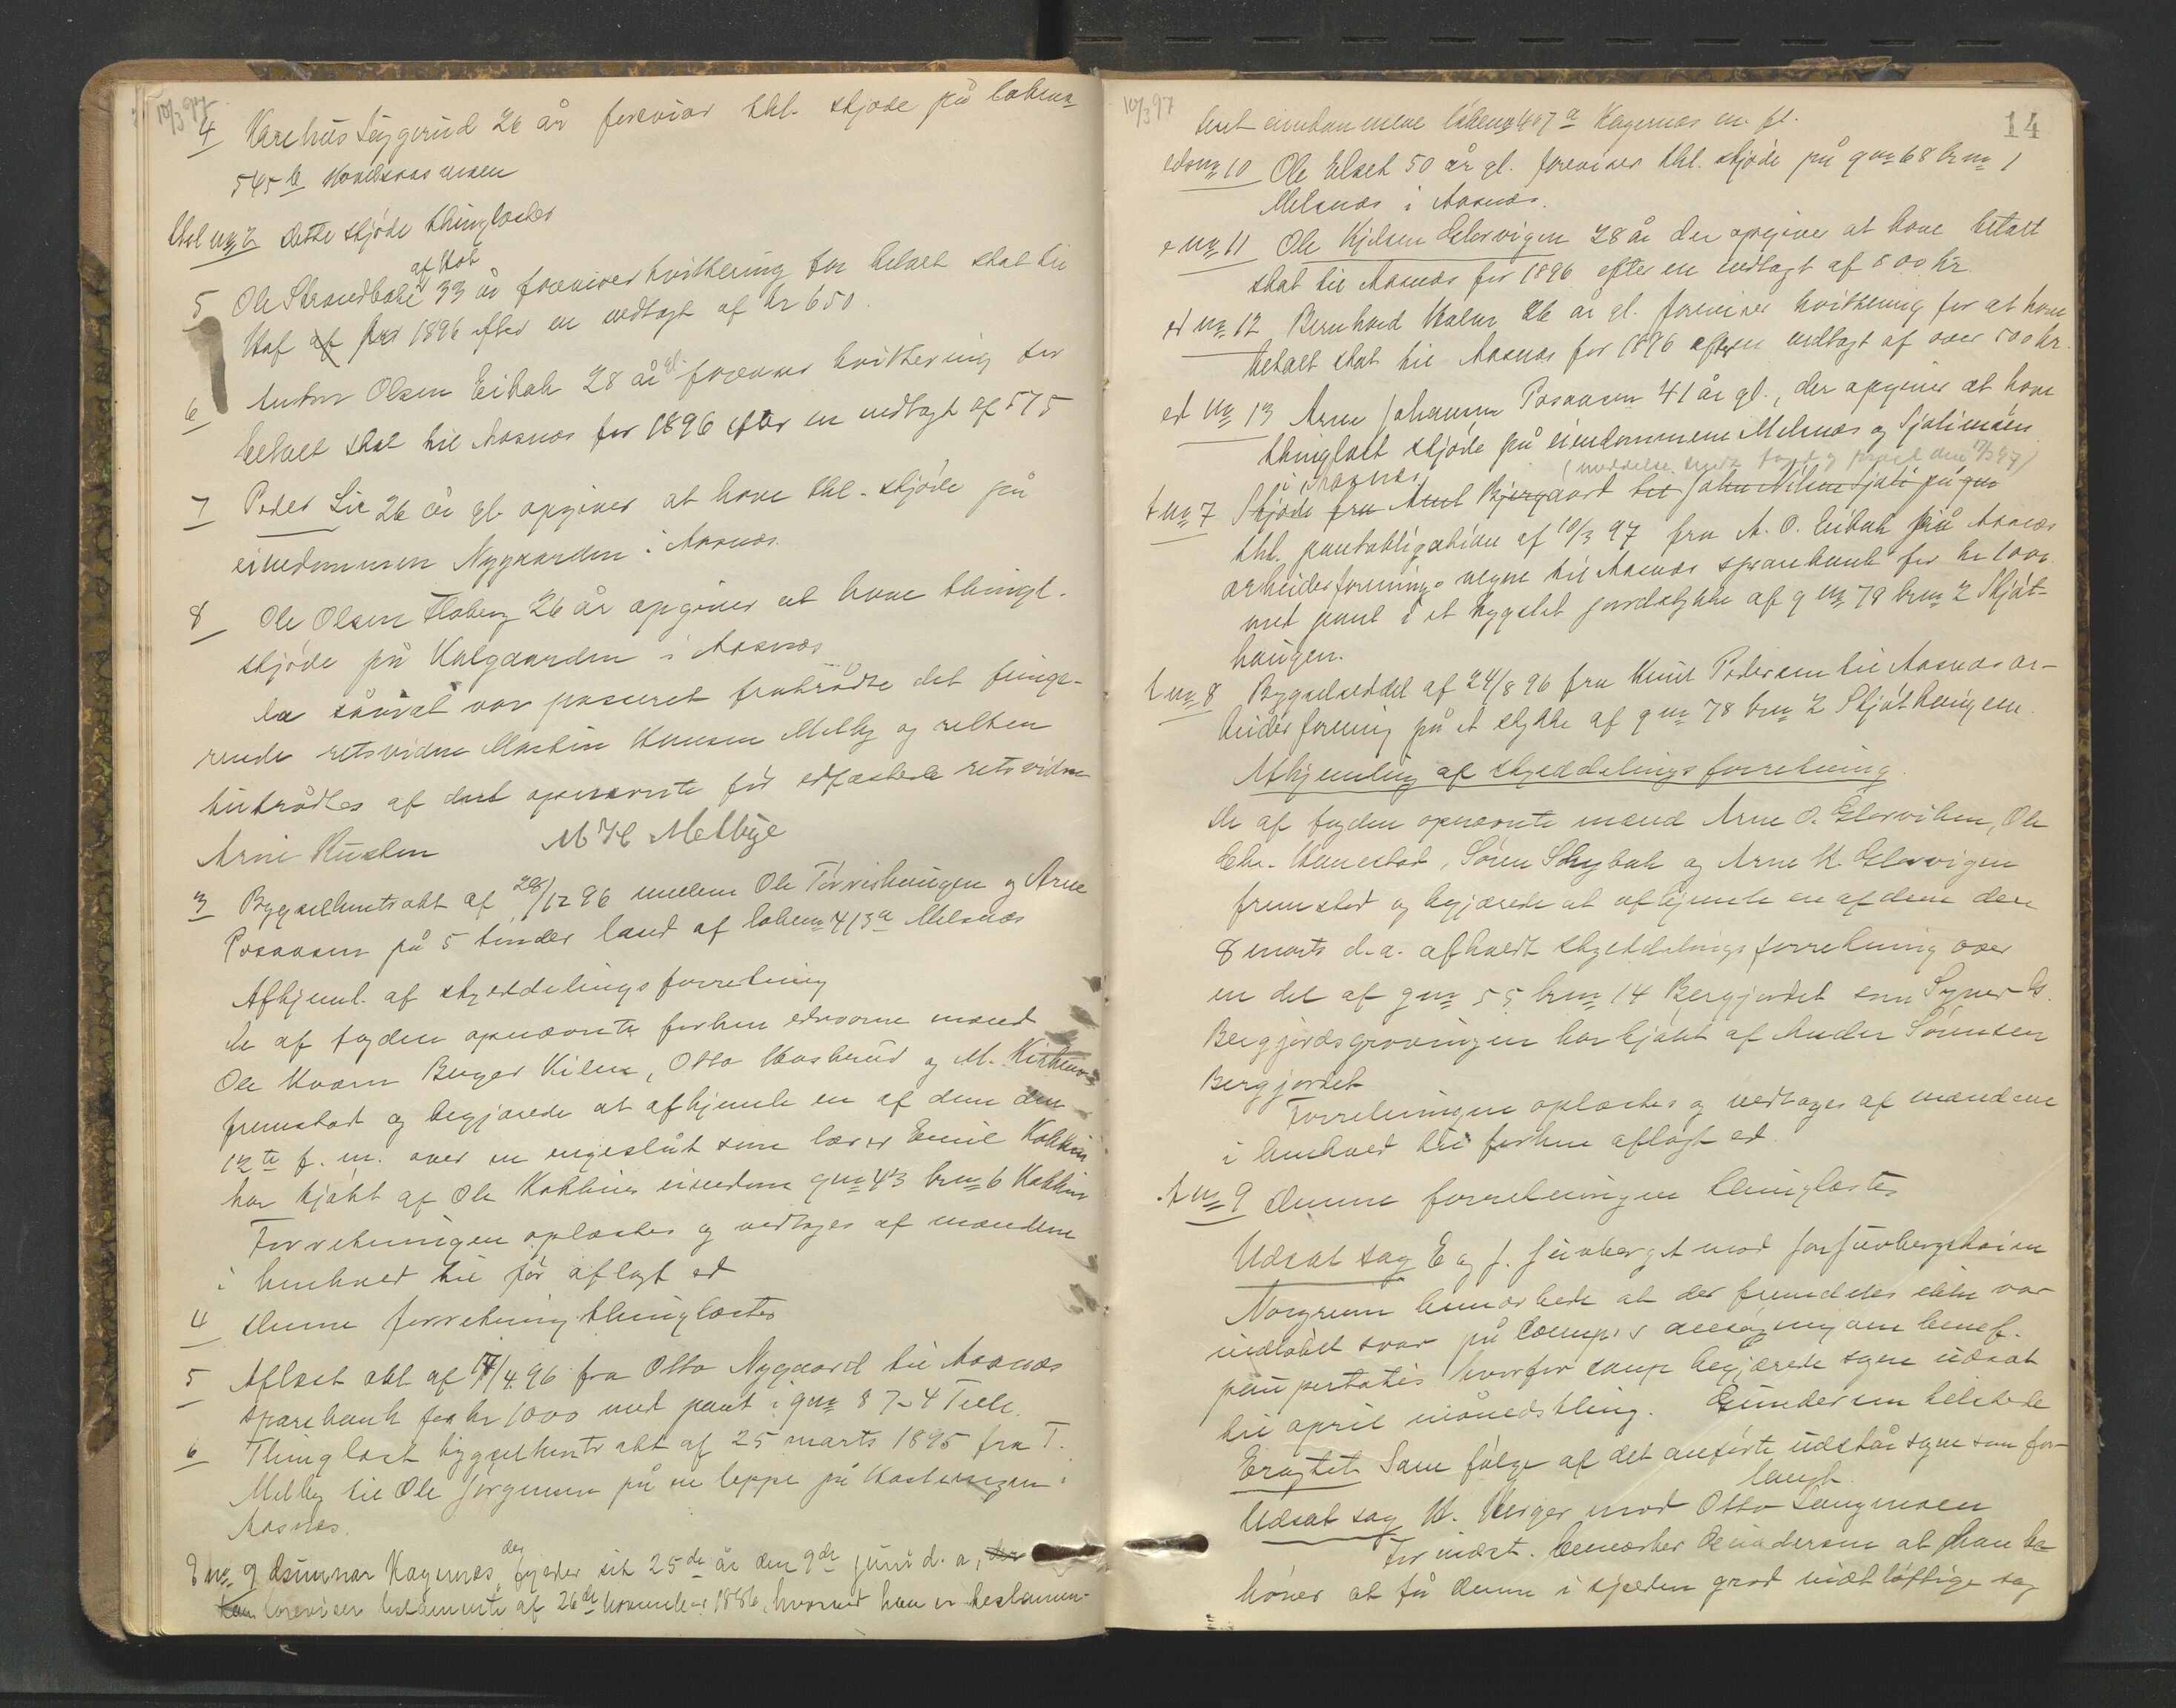 10/3 97
4 Karelius Løggerud 26 år foreviser thl. skjøde på løbenr
545 b
thl nr 2 dette skjøde thinglæstes
af Hof
5 Ole Strandbake 33 år foreviser kvittering for betalt skat til
Hof af for 1896 efter en indtægt af kr 650.
6 Anton Olsen Eibak 28 år gl. foreviser kvittering for
betalt skat til Aasnæs for 1896 efter en indtægt af 575
7 Peder Lie 26 år gl. opgiver at have thl. skjøde på
eiendommen Nygaarden i Aasnæs.
8 Ole Olsen Floberg 26 år opgiver at have thingl.
skjøde på Kalgaarden i Aasnæs
Da såvidt var passeret fratrådte det funge-
rende retsvidne Martin Hansen Melby og retten
tiltrådtes af det opnævnte før edfæstede retsvidne
Arne Rusten M H Melbye
3 Bygselkontrakt af 28/12 96 mellem Ole Tørrishaugen og Arne
Posaasen på 5 tønder land af løbenr 413 a Melsnæs
Afhjeml. af skylddelingsforretning
De af fogden opnævnte forhen edsvorne mænd
Ole Kvarn Berger Kilen, Otto Hasherud og M.
fremstod og begjærede at afhjemle en af dem den
12te f. m. over en engeslåt som lærer Emil Kokkin
har kjøbt af Ole Kokkins eiendom gnr 43 brnr 6 Kokkin
Forretningen oplæstes og vedtoges af mændene
i henhold til før aflagt ed
4 Denne forretning thinglæstes
5 Aflæst obl af 17/4 96 fra Otto Nygaard til Aasnæs
sparebank for kr 1000 med pant i gnr 87-4
6 Thinglæst bygselkontrakt af 25 marts 1895 fra T.
Melby til Ole Jørgensen på en løppe på i
Aasnæs.
E nr 9 Gunnar Kagernæs der fylder sit 25de år den 9de juni d. a, der
han foreviser testamente af 26de november 1886, hvorved han er testamen-
10/3 97
14
teret eiendommene løbenr 407 a Kagernæs m. fl.
edsnr 10 Ole Elset 50 år gl. foreviser thl. skjøde på gnr 68 brnr 1
Melsnæs i Aasnæs.
e nr 11 Ole Kjelsen Glorvigen 28 år der opgiver at have betalt
skat til Aasnæs for 1896 efter en indtægt af 800 kr.
ed nr 12 Bernhard Holm 26 år gl. foreviser kvittering for at have
betalt skat til Aasnæs for 1896 efter en indtægt af over 500 kr.
ed nr 13 Arne Johannesen Posaasen 41 år gl., der opgiver at have
thinglæst skjøde på eiendommene Melsnæs og Sjølimoen
i Aasnæs.
t nr 7 Skjøde fra Amt Bjergaard til John Nilsen Sjøli på gnr
thl. pantobligation af 10/3 97 fra A. O. Eibak på Aasnæs
arbeiderforenings vegne til Aasnæs sparebank for kr 1000
med pant i et bygslet jordstykke af gnr 78 brnr 2 Skjøt-
haugen.
t nr 8 Bygselseddel af 24/8 96 fra Knut Pedersen til Aasnæs ar-
beiderforening på et stykke af gnr 78 brnr 2 Skjøthaugen.
Afhjemling af skylddelingsforretning.
De af fogden opnævnte mænd Arne O. Glorviken, Ole
Chr. Hanestad, Søren Skybak og Arne K. Glorvigen
fremstod og begjærede at afhjemle en af dem den
8 marts d. a. afholdt skylddelingsforretning over
en del af gnr 55 brnr 14 Bergjordet som Syver
Bergjordsgrovningen har kjøbt af Anders Sørensen
Bergjordet
Forretningen oplæstes og vedtoges af mændene
i henhold til forhen aflagt ed.
t nr 9 Denne forretningen thinglæstes
Udsat sag E og J. Juvberget mod Jon Juvbergshaien
Norgrenn bemærkede at der fremdeles ikke var
indløbet svar på comp.s ansøgning om benef.
paupertatis hvorfor comp begjærede sagen udsat
til april månedsthing. Gundersen tilstede
Eragtet Som følge af det anførte udstår sagen som for-
langt.
Udsat sag K. Berger mod Otto Langmoen
For indst. bemærker Gundersen at han be-
høver at få denne i sjelden grad vidtløftige sag